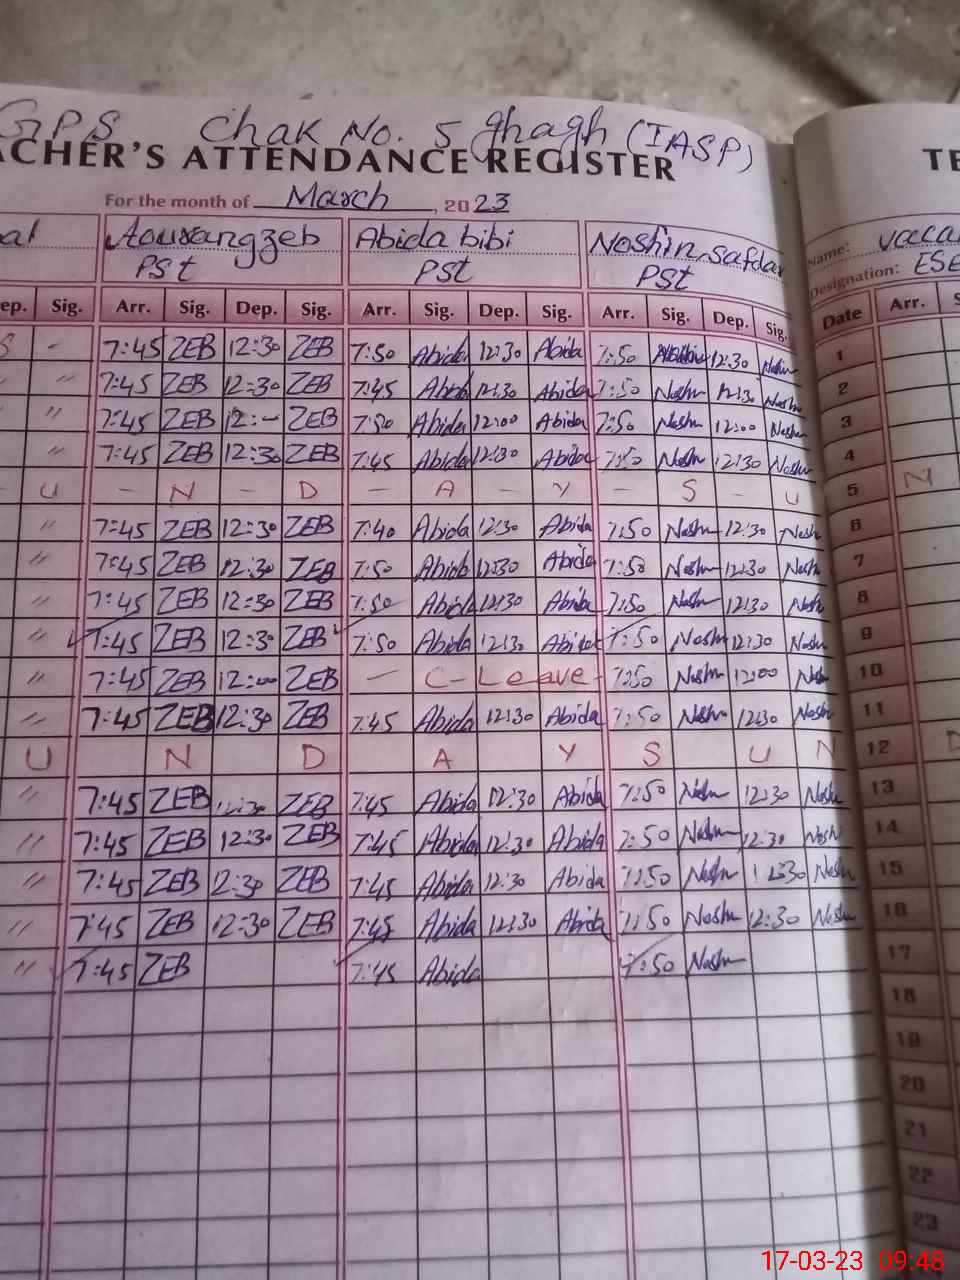 GPS Chak No. 5 ghagh (IASP)
ACHER'S ATTENDANCE REGISTER TE
For the month of March, 2023
Aourangzeb Abida bibi Noshin safdar Name:
PSt PSt PSt Designation: ESE
ep. Sig. Arr. Sig. Dep. Sig. Arr. Sig. Dep. Sig. Arr. Sig. Dep. Sig. Date Arr. S
- 7:45 ZEB 12:30 ZEB 7:50 Abida 12:30 Abida 7:50 12:30 Nosh 1
" " 7:45 ZEB 12:30 ZEB 7:45 Abida 12:30 Abida 7:50 Nosh 12:30 Nosh 2
" " 7:45 ZEB 12:- ZEB 7:50 Abida 12:00 Abida 7:50 Nosh 12:00 Nosh 3
" " 7:45 ZEB 12:30 ZEB 7:45 Abida 12:30 Abida 7:50 Nosh 12:30 Nosh 4
- U - N - D - A - Y - S - U 5 N
" 7:45 ZEB 12:30 ZEB 7:40 Abida 12:30 Abida 7:50 Nosh 12:30 Nosh 6
" 7:45 ZEB 12:30 ZEB 7:50 Abida 12:30 Abida 7:50 Nosh 12:30 Nosh 7
" 7:45 ZEB 12:30 ZEB 7:50 Abida 12:30 Abida 7:50 Nosh 12:30 Nosh 8
" 7:45 ZEB 12:30 ZEB 7:50 Abida 12:30 Abida 7:50 Nosh 12:30 Nosh 9
" 7:45 ZEB 12:00 ZEB - C-Leave - 7:50 Nosh 12:00 Nosh 10
" 7:45 ZEB 12:30 ZEB 7:45 Abida 12:30 Abida 7:50 Nosh 12:30 Nosh 11
U N D A Y S U N 12 D
" 7:45 ZEB 12:30 ZEB 7:45 Abida 12:30 Abida 7:50 Nosh 12:30 Nosh 13
" 7:45 ZEB 12:30 ZEB 7:45 Abida 12:30 Abida 7:50 Nosh 12:30 Nosh 14
" 7:45 ZEB 12:30 ZEB 7:45 Abida 12:30 Abida 7:50 Nosh 12:30 Nosh 15
" 7:45 ZEB 12:30 ZEB 7:45 Abida 12:30 Abida 7:50 Nosh 12:30 Nosh 16
" 7:45 ZEB 7:45 Abida 7:50 Nosh 17
18
19
20
21
22
23
17-03-23 09:48